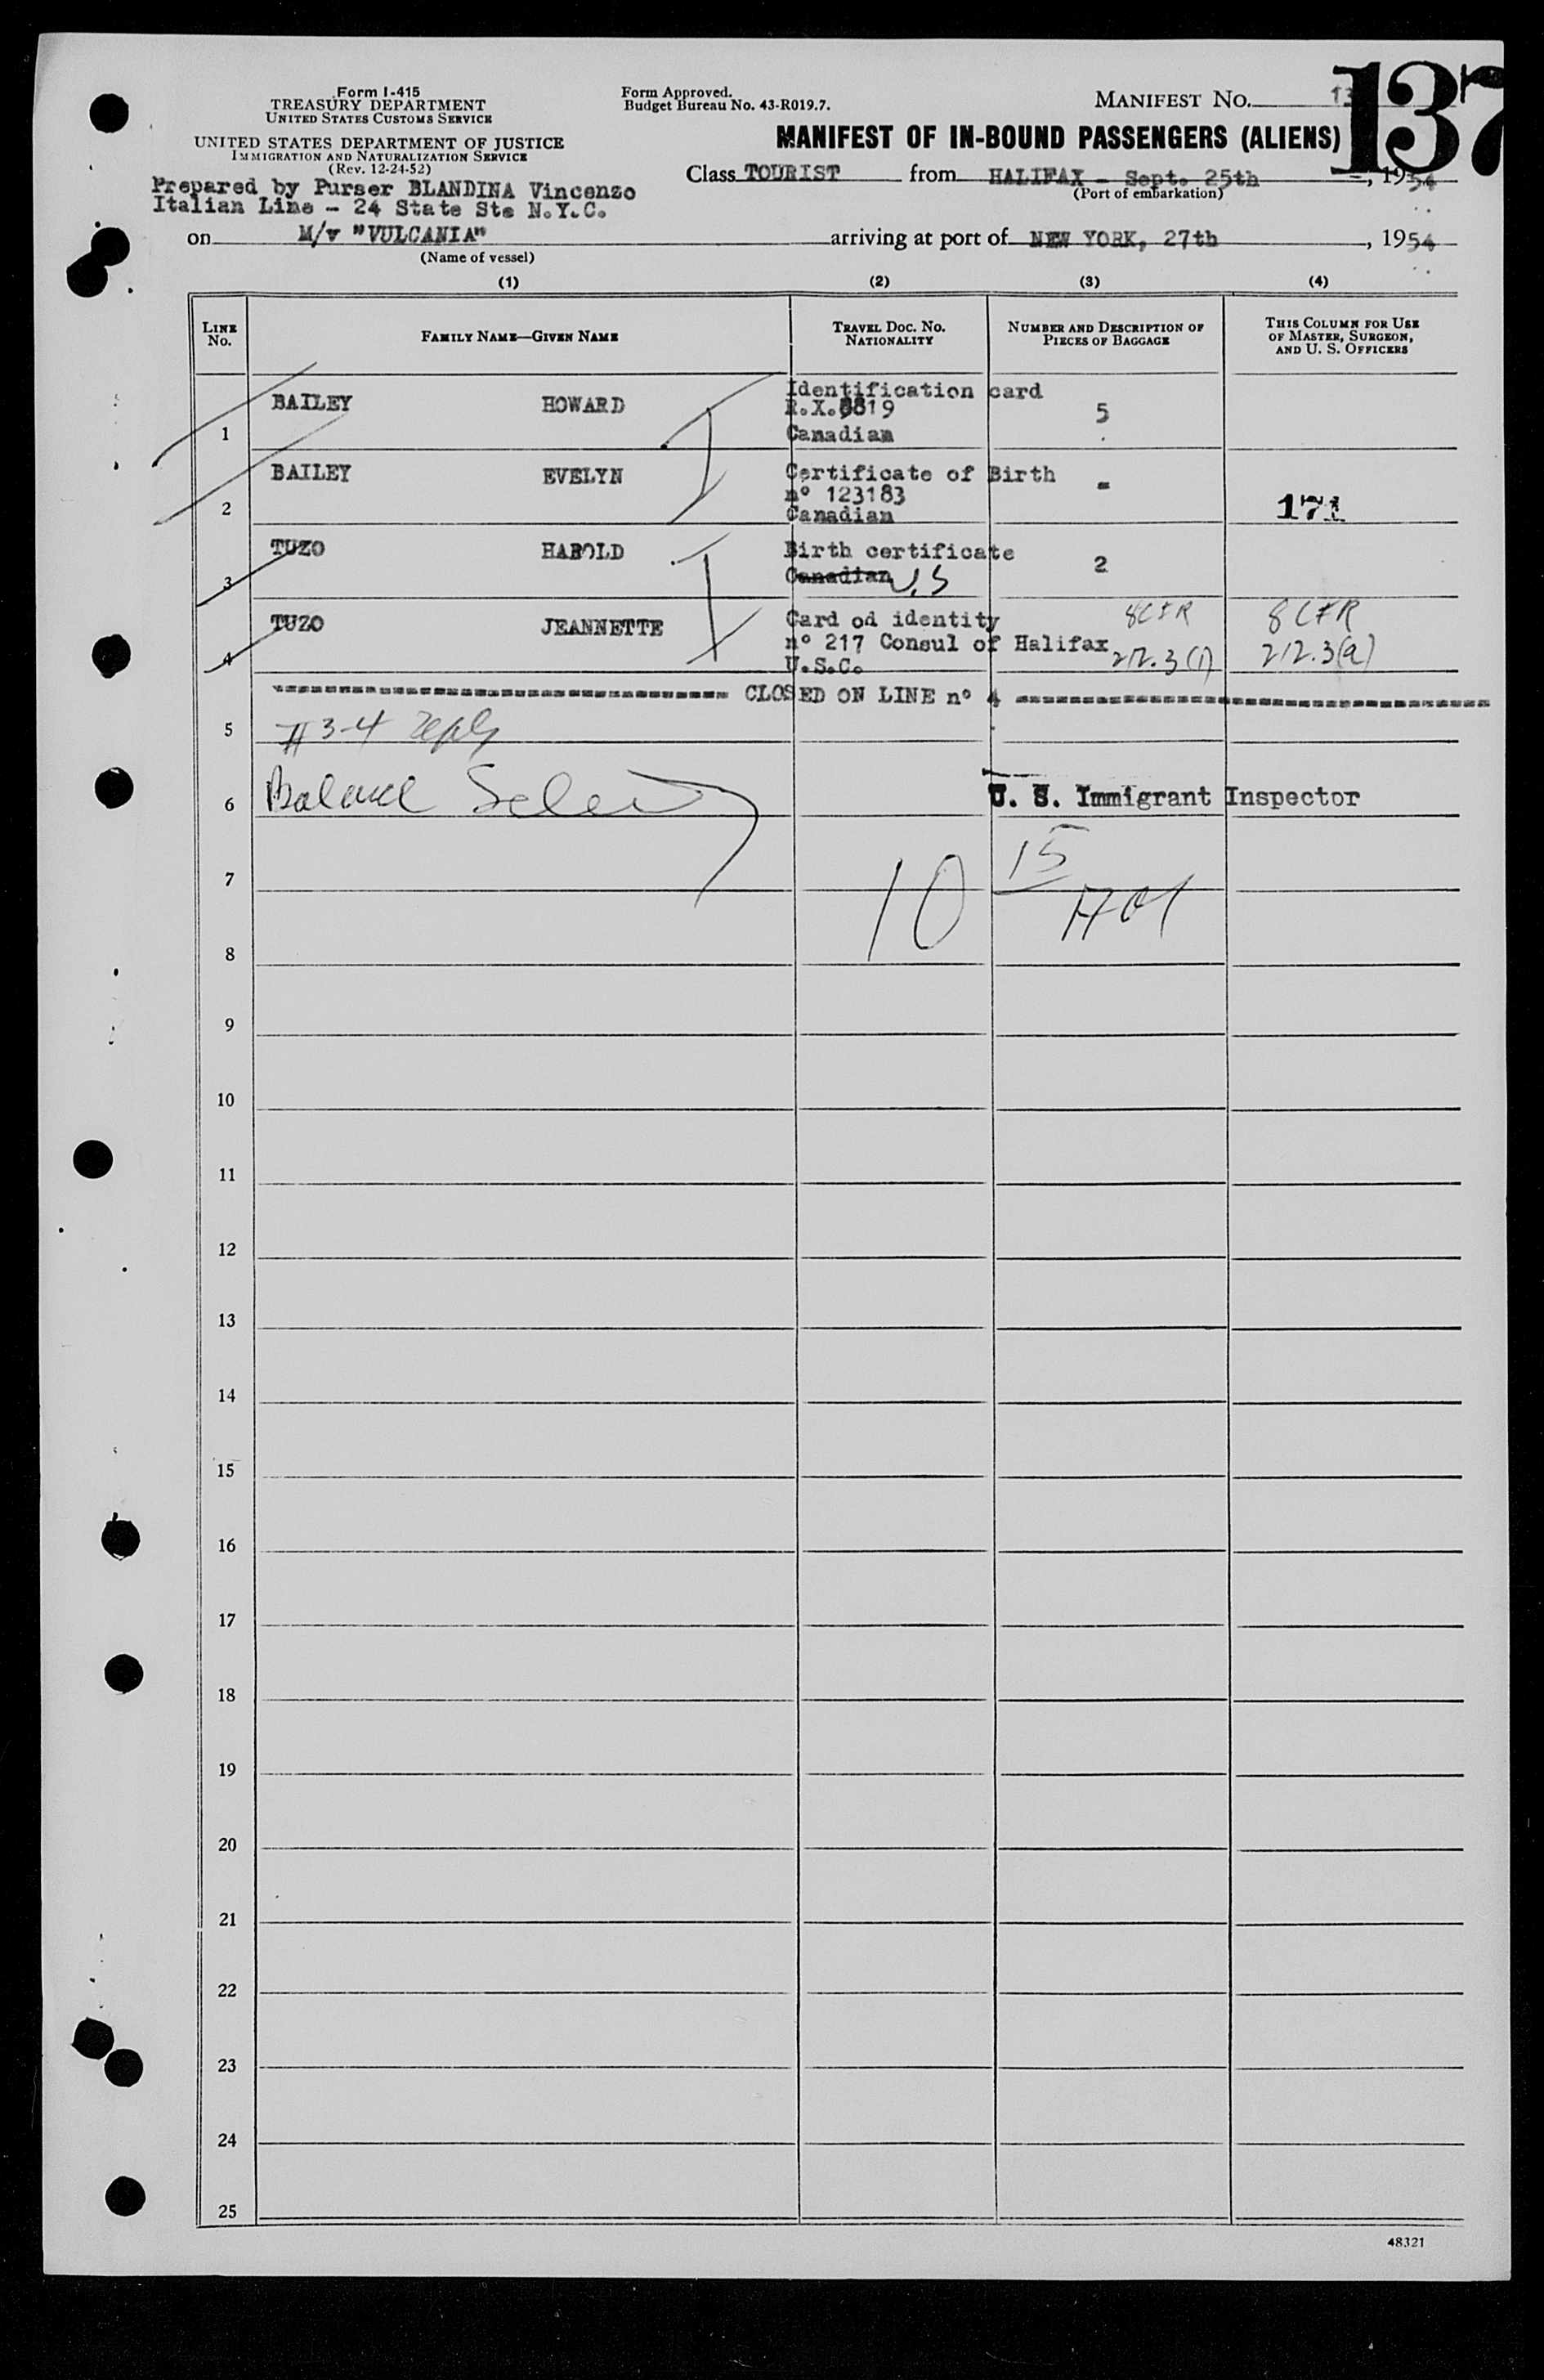 Form I-415
TREASURY DEPARTMENT
UNITED STATES CUSTOMS SERVICE
UNITED STATES DEPARTMENT OF JUSTICE
IMMIGRATION AND NATURALIZATION SERVICE
(Rev. 12-24-52)
Form Approved.
Budget Bureau No. 43-R019.7.
MANIFEST NO.
137
MANIFEST OF IN-BOUND PASSENGERS (ALIENS)
Prepared by Purser BLANDINA Vincenzo
Italian Line - 24 State Ste N.Y.C.
Class TOURIST from HALIFAX - Sept. 25th, 1954
(Port of embarkation)
on M/v "VULCANIA" arriving at port of NEW YORK, 27th, 1954
(Name of vessel)
(1) (2) (3) (4)
LINE NO. FAMILY NAME—GIVEN NAME TRAVEL DOC. NO. NATIONALITY NUMBER AND DESCRIPTION OF PIECES OF BAGGAGE THIS COLUMN FOR USE OF MASTER, SURGEON, AND U. S. OFFICERS
Identification card
BAILEY HOWARD R.X.8819 5
1 Canadian
BAILEY EVELYN Certificate of Birth -
nº 123183
2 Canadian 171
TUZO HAROLD Birth certificate 2
3 Canadian U.S
TUZO JEANNETTE Card od identity 8CFR 8 CFR
nº 217 Consul of Halifax 212.3(1) 212.3(a)
4 U.S.C.
CLOSED ON LINE nº 4
5 #3-4
6 Balance U. S. Immigrant Inspector
15
7
10
8
9
10
11
12
13
14
15
16
17
18
19
20
21
22
23
24
25
48321